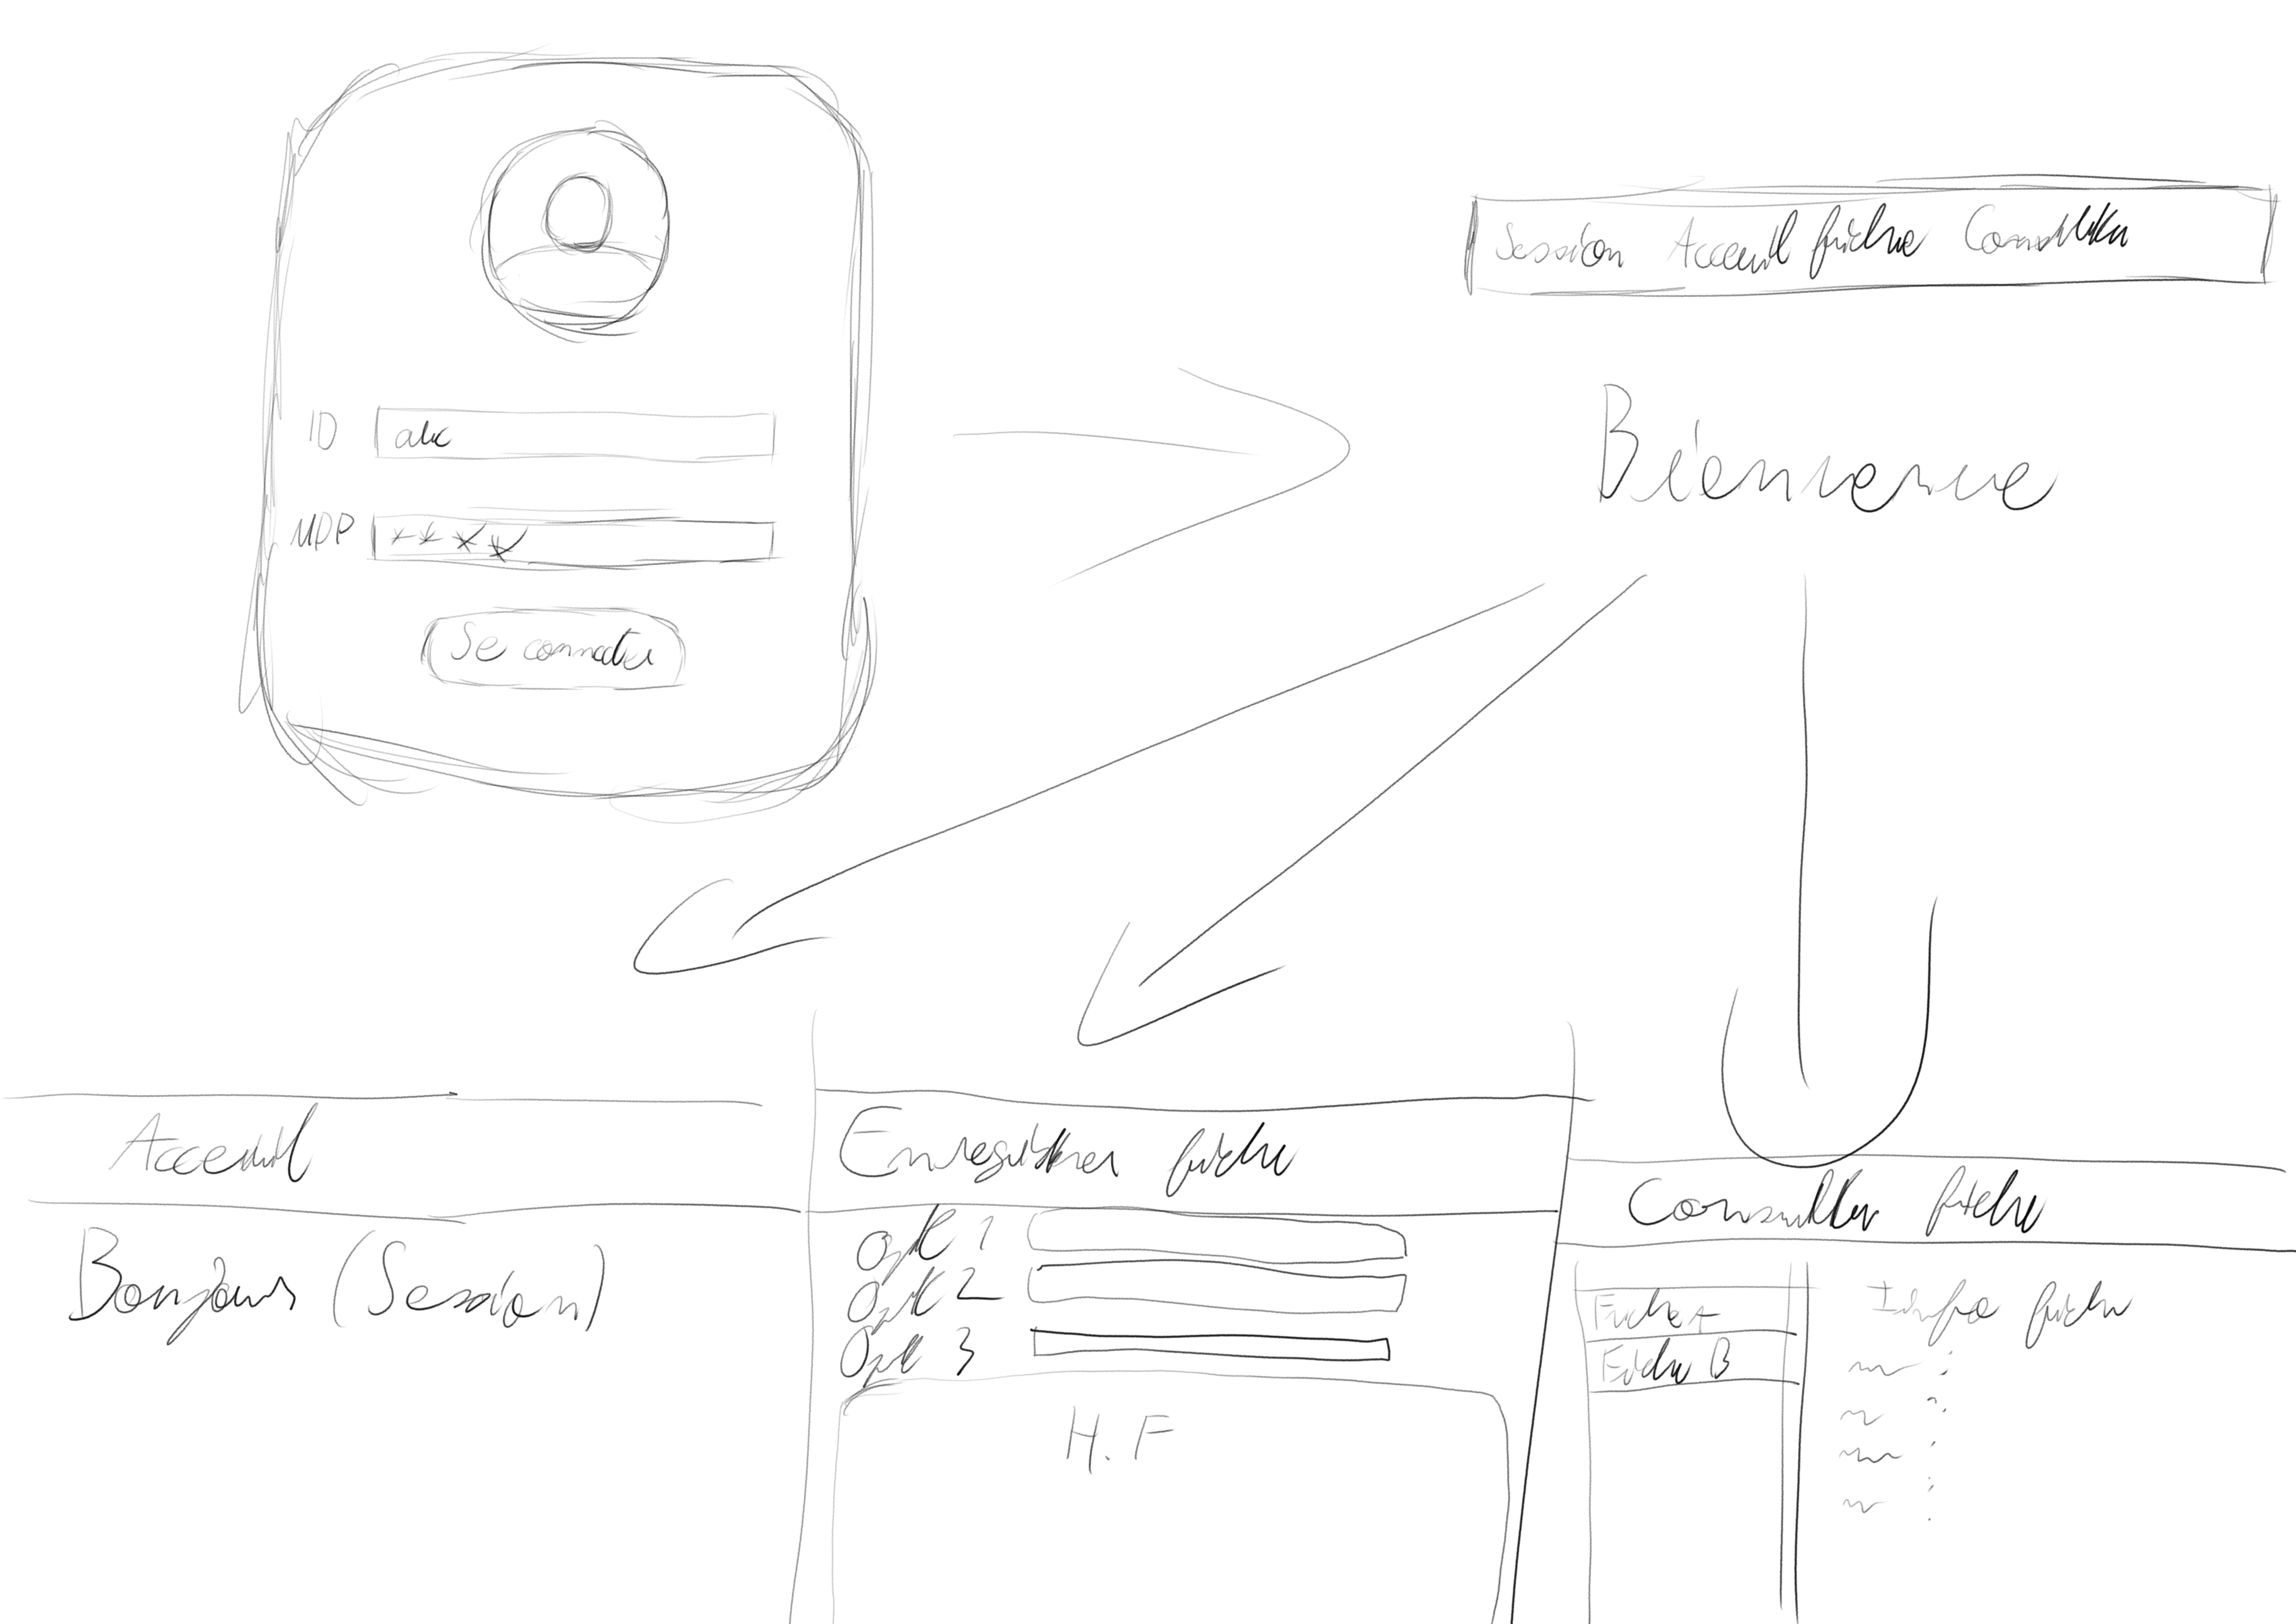 ID abc
MDP ****
Se connecter
Session Acceuil fiche Consulter
Bienvenue
Acceuil
Bonjour (Session)
Enregistrer fiche
Opt 1
Opt 2
Opt 3
H.F
Consulter fiche
Fiche A
Fiche B
Info fiche